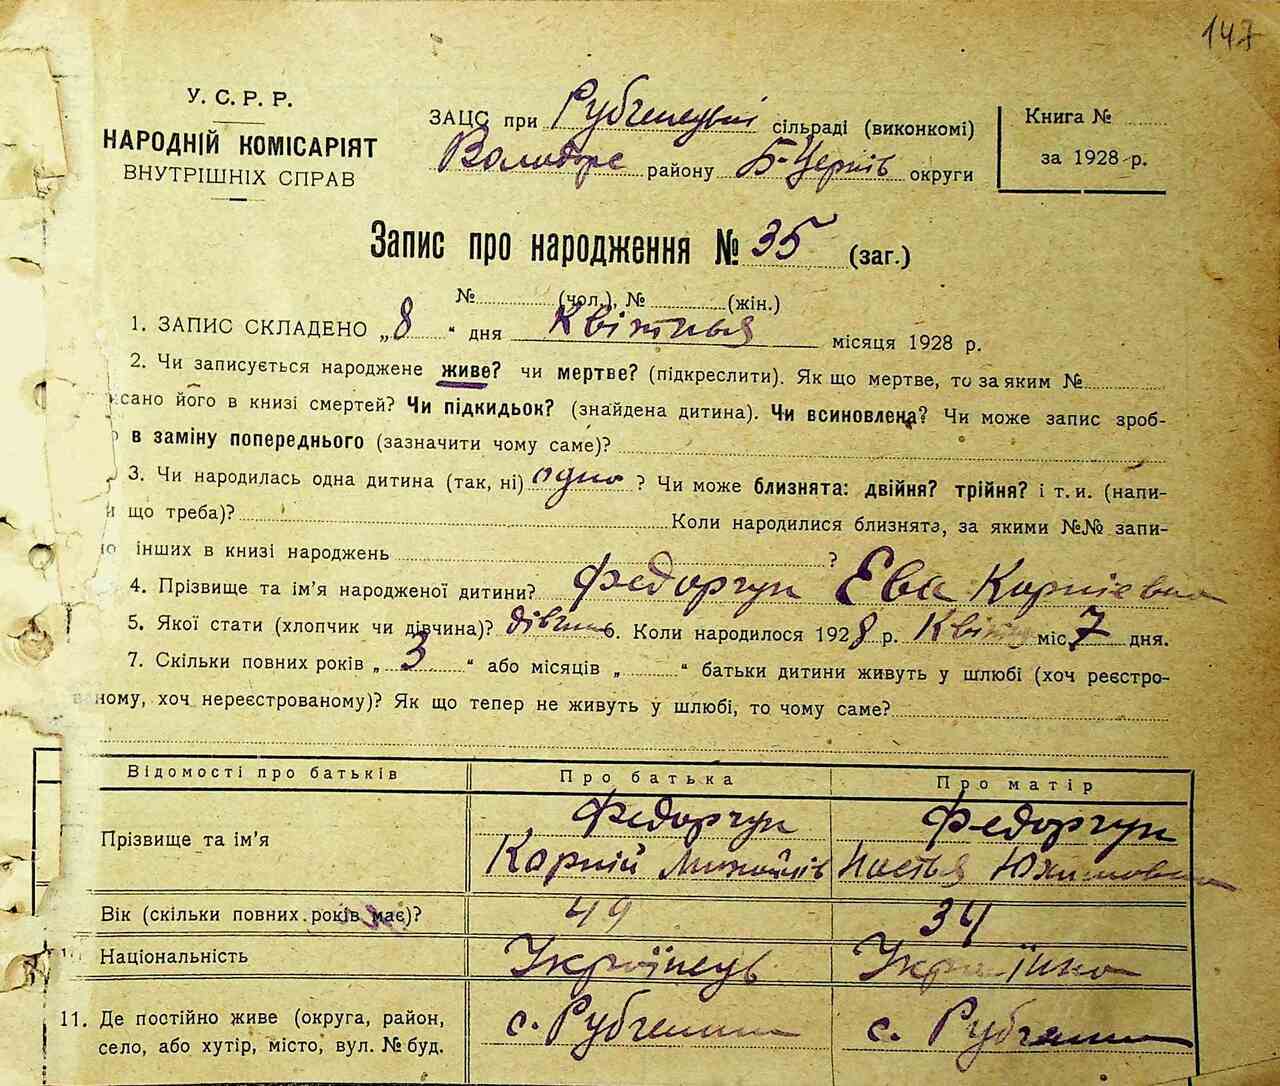 147
У. С. Р. Р.
НАРОДНІЙ КОМІСАРІЯТ
ВНУТРІШНІХ СПРАВ
ЗАЦС при Рубченецькій сільраді (виконкомі)
Володарс району Б-Церків округи
Книга №
за 1928 р.
Запис про народження № 35 (заг.)
№ (чол.), № (жін.)
1. ЗАПИС СКЛАДЕНО „8“ дня Квітнья місяця 1928 р.
2. Чи записується народжене живе? чи мертве? (підкреслити). Як що мертве, то за яким №
исано його в книзі смертей? Чи підкидьок? (знайдена дитина). Чи всиновлена? Чи може запис зроб-
о в заміну попереднього (зазначити чому саме)?
3. Чи народилась одна дитина (так, ні) одно ? Чи може близнята: двійня? трійня? і т. и. (напи-
и що треба)? Коли народилися близнята, за якими №№ запи-
но інших в книзі народжень ?
4. Прізвище та ім’я народженої дитини? Федорчук Ева Корніевна
5. Якої стати (хлопчик чи дівчина)? дівчин 6. Коли народилося 1928 р. Квітн міс. 7 дня.
7. Скільки повних років „3“ або місяців „ “ батьки дитини живуть у шлюбі (хоч реєстро-
ваному, хоч нереєстрованому)? Як що тепер не живуть у шлюбі, то чому саме?
Відомості про батьків Про батька Про матір
Федорчук Федорчук
Прізвище та ім’я Корній Михайлів Настья Юхимовна
Вік (скільки повних років має)? 49 34
10. Національність Українець Українка
11. Де постійно живе (округа, район, с. Рубченки с. Рубченки
село, або хутір, місто, вул. № буд.